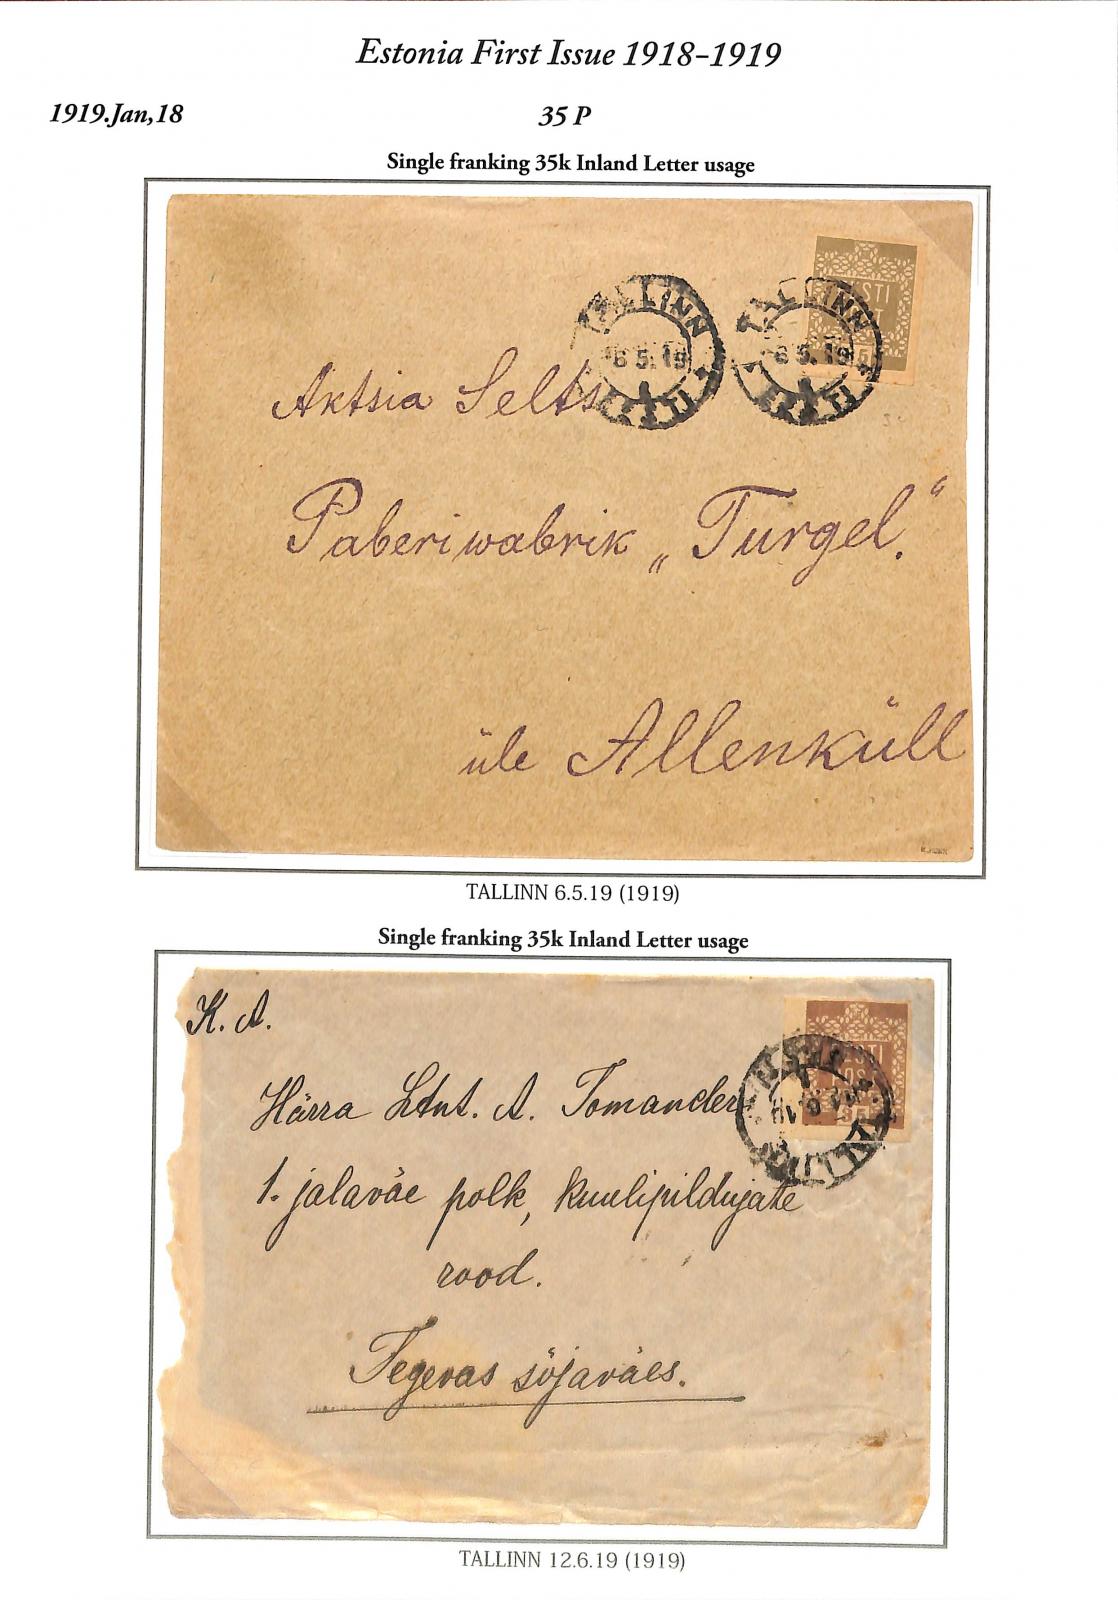 Estonia First Issue 1918-1919
1919.Jan,18
35 P
Single franking 35k Inland Letter usage
EESTI
POST
TALLINN
6 5. 19
EESTI
TALLINN
6 5. 19
EESTI
Aktsia Selts
Paberiwabrik „Turgel.“
üle Allenküll
TALLINN 6.5.19 (1919)
Single franking 35k Inland Letter usage
K. A.
EESTI
POST
35
Härra Ltnt. A. Tomander
1. jalaväe polk, kuulipildujate
rood.
Tegevas sõjaväes.
TALLINN 12.6.19 (1919)